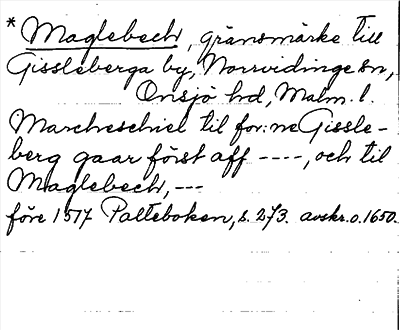 * Maglebech, gränsmärke till
Gissleberga by, Norrvidinge sn,
Onsjö hd, Malm. l.
Marcheschiel til for:ne Gissle-
berg gaar först aff ----, och til
Maglebech, ---
före 1517 Palteboken, s. 273. avskr. o. 1650.